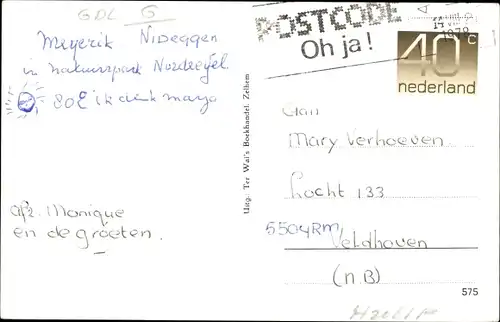 GDL G
Meyerik Nideggen
in natuurpark Nordeifel.
afz. Monique
en de groeten.
Uitg.: Ter Wal's Boekhandel, Zelhem
POSTCODE
Oh ja!
1978
40c
nederland
Aan
Mary Verhoeven
Locht 133
5504RM
Veldhoven
(N.B)
575